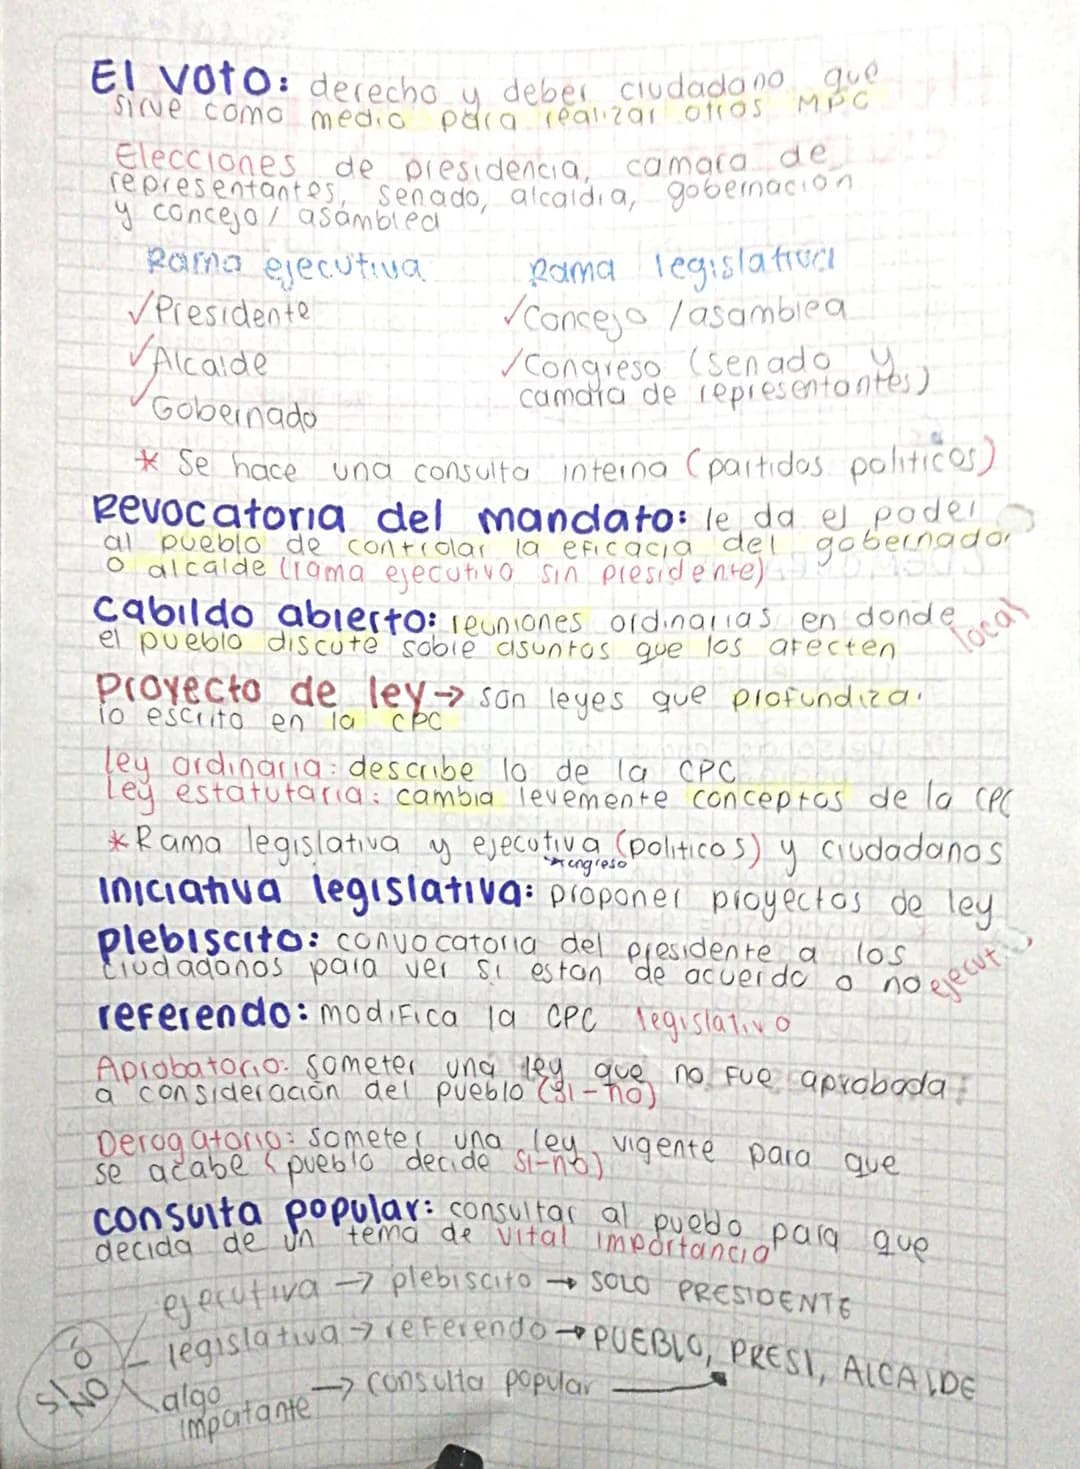 El voto: derecho y deber ciudadano que
sirve como medio para realizar otros MPC
Elecciones de presidencia, camara de
representantes, senado, alcaldia, gobernacion
y concejo / asamblea
Rama ejecutiva
Rama legislativa
✓Presidente
✓Concejo / asamblea
✓Alcalde
✓Congreso (senado y
camara de representantes)
✓Gobernado
* Se hace una consulta interna (partidos politicos)
Revocatoria del mandato: le da el poder
al pueblo de controlar la eficacia del gobernador
o alcalde (rama ejecutiva sin presidente)
cabildo abierto: reuniones ordinarias en donde
el pueblo discute sobre asuntos que los afecten
local
Proyecto de ley → son leyes que profundizar
lo escrito en la CPC
Ley ordinaria: describe lo de la CPC
Ley estatutaria: cambia levemente conceptos de la CPC
*Rama legislativa y ejecutiva (politicos) y ciudadanos
*congreso
Iniciativa legislativa: proponer proyectos de ley
plebiscito: convocatoria del presidente a los
ciudadanos para ver si estan de acuerdo o no
referendo: modifica la CPC legislativo
Aprobatorio: someter una ley que no fue aprobada
a consideración del pueblo (si-no)
Derogatorio: someter una ley vigente para que
se acabe (pueblo decide si-no)
consulta popular: consultar al pueblo para que
decida de un tema de vital importancia
ejecutiva → plebiscito → SOLO PRESIDENTE
SI O NO
legislativa → referendo → PUEBLO, PRESI, ALCALDE
algo → consulta popular
impotante